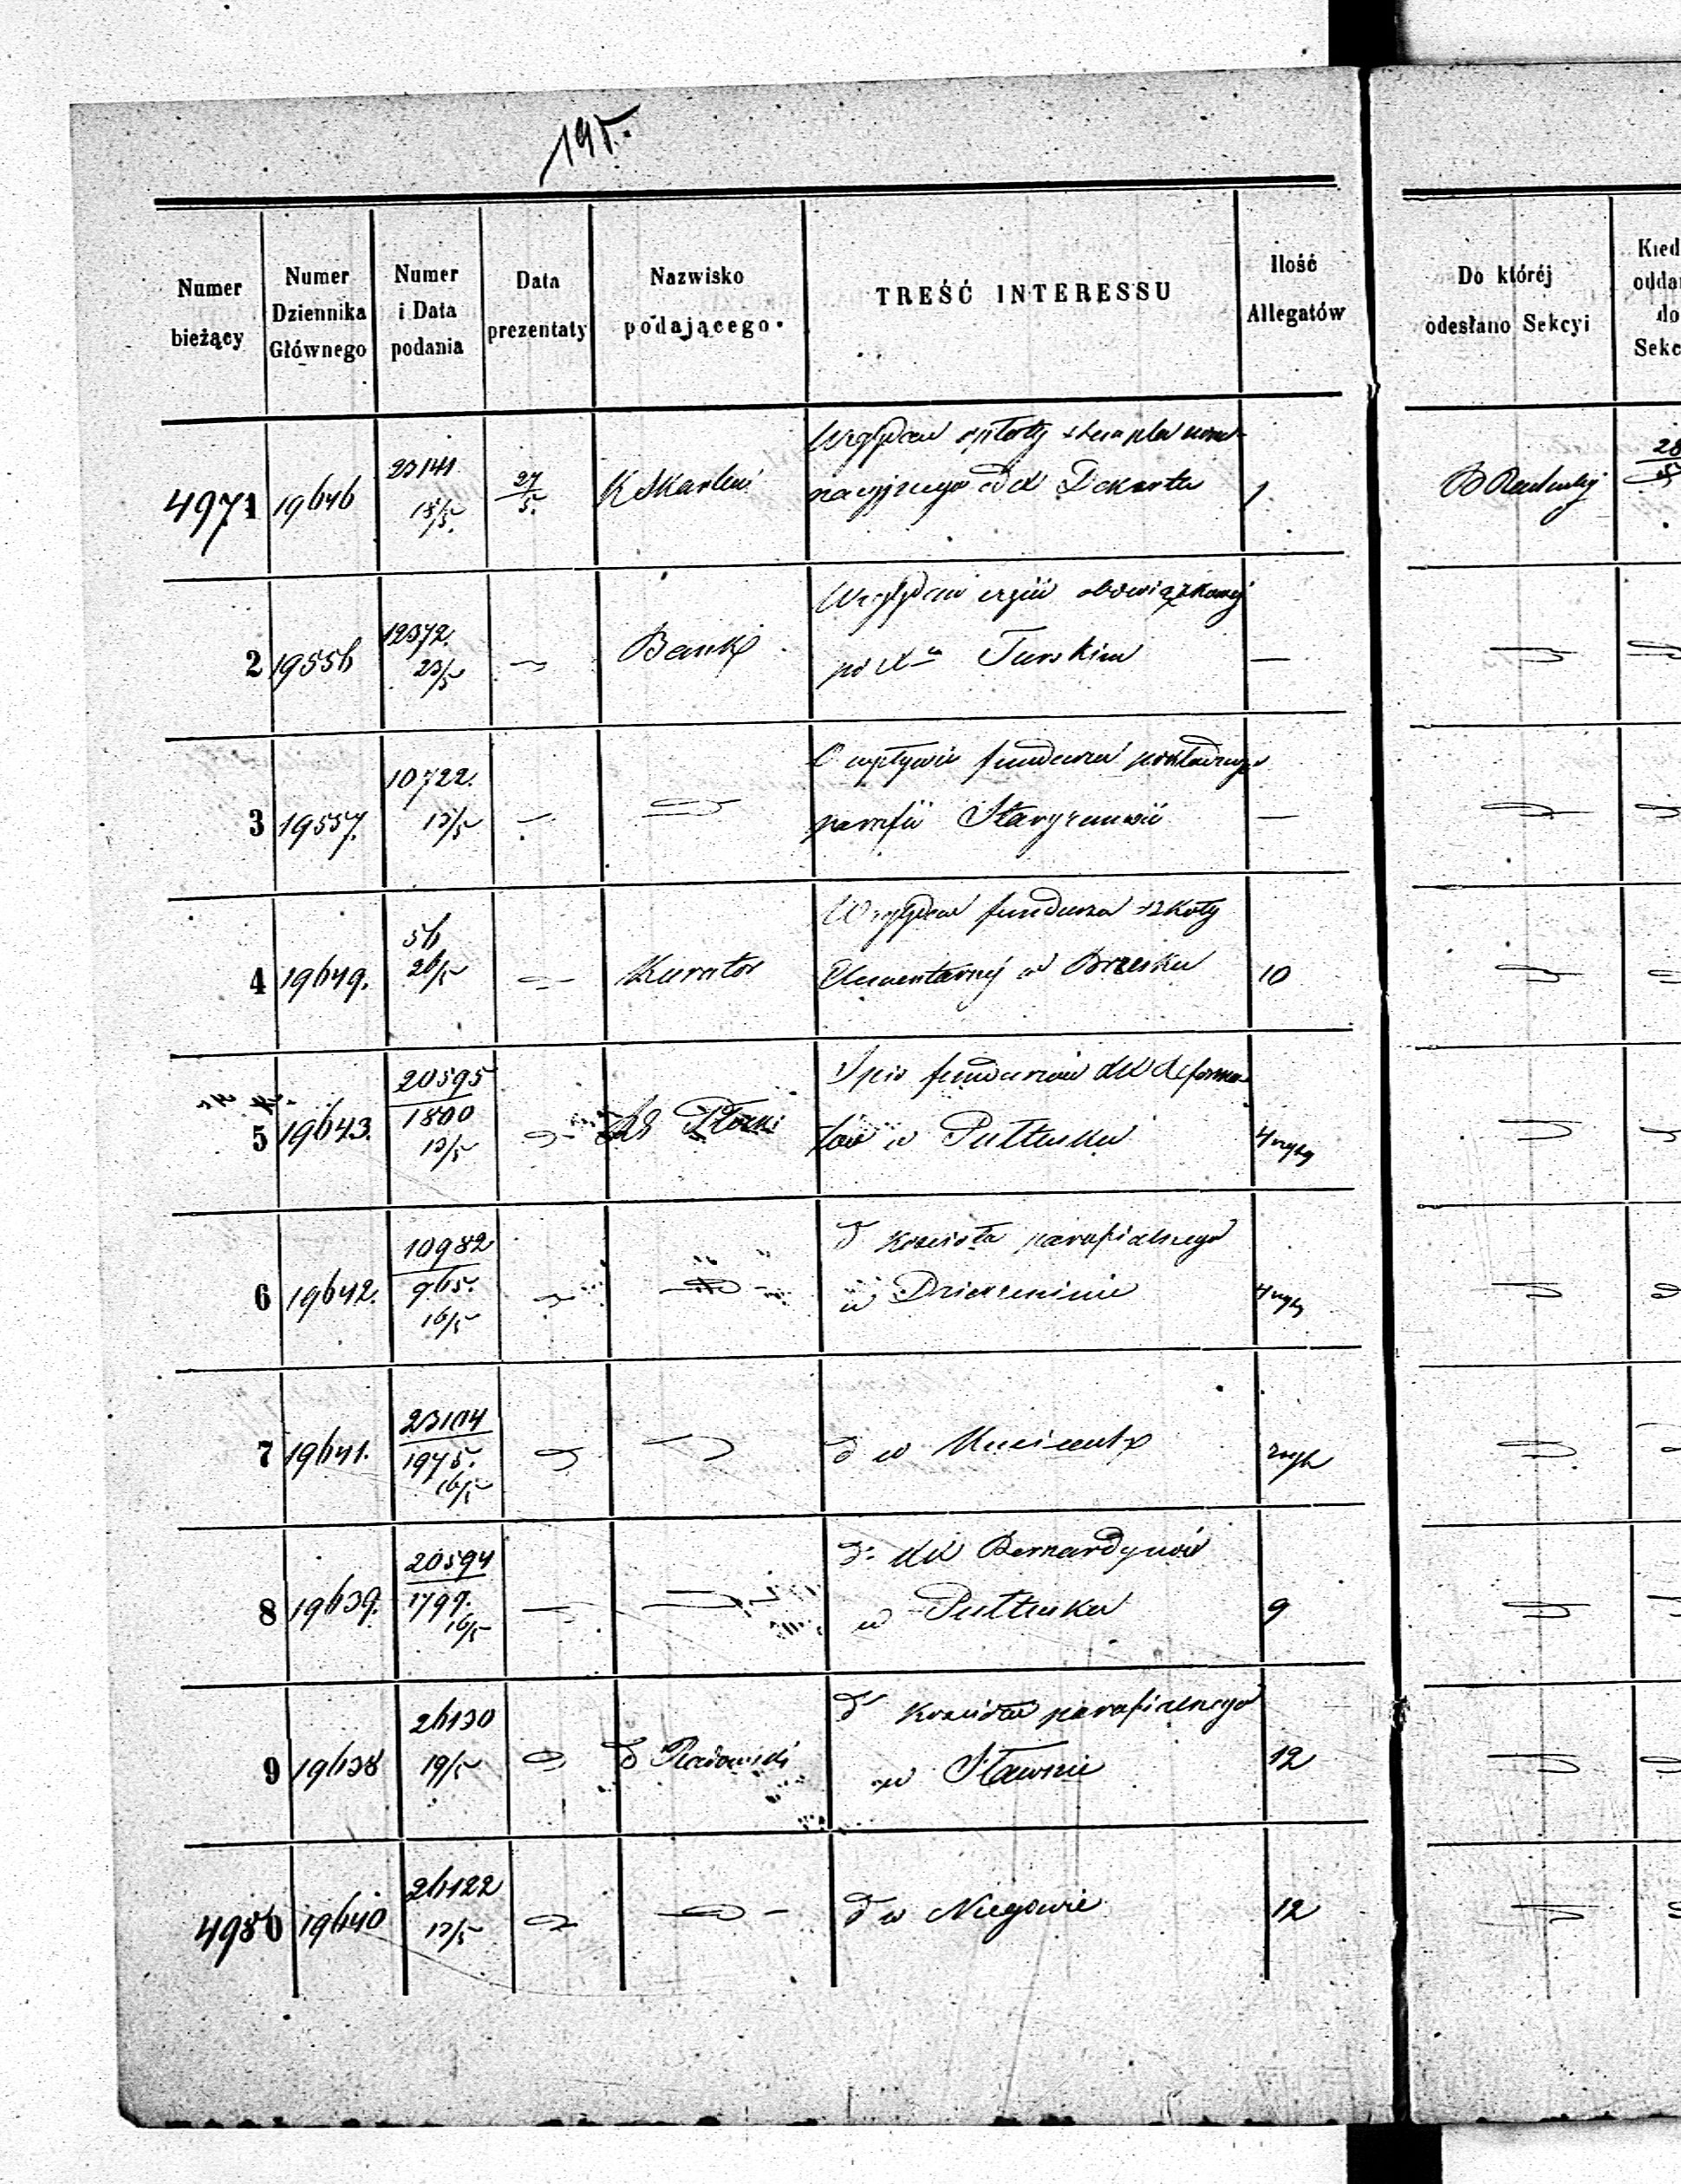 195.
Numer bieżący
Numer Dziennika Głównego
Numer i Data podania
Data prezentaty
Nazwisko podającego.
TREŚĆ INTERESSU
Ilość Allegatów
Do któréj odesłano Sekcyi
Kied
odda
do
Sekc
4971 19646 23141 18/5. 27/5. K Skarbu
Względem opłaty stempla nomi-
nacyjnego od X Dekerta
1
28/5
2 19556 12372. 23/5 Bank
Względem obowiązkowej
po X Turskim —
3 19557. 10722. 13/5
O wpływie funduszu pokładnego
parafii —
4 19649. 56 26/5 Kurator
Względem funduszu szkoły
Elementarnej w Brzesku 10
5 19643. 20595/1800 13/5 Płocki
Spis funduszów XX Reforma-
tów w Pułtusku
6 19642. 10982/965. 16/5
d° Kościoła parafialnego
w Dzierzeninie
7 19641. 23104/1975. 16/5
d w
8 19639. 20594/1799. 16/5
d° XX Bernardynów
w Pułtusku 9
9 19638 26130 19/5 Radomski
d° Kościoła parafialnego
w Sławnie 12
4980 19640 26122 13/5
d w Niegowie 12